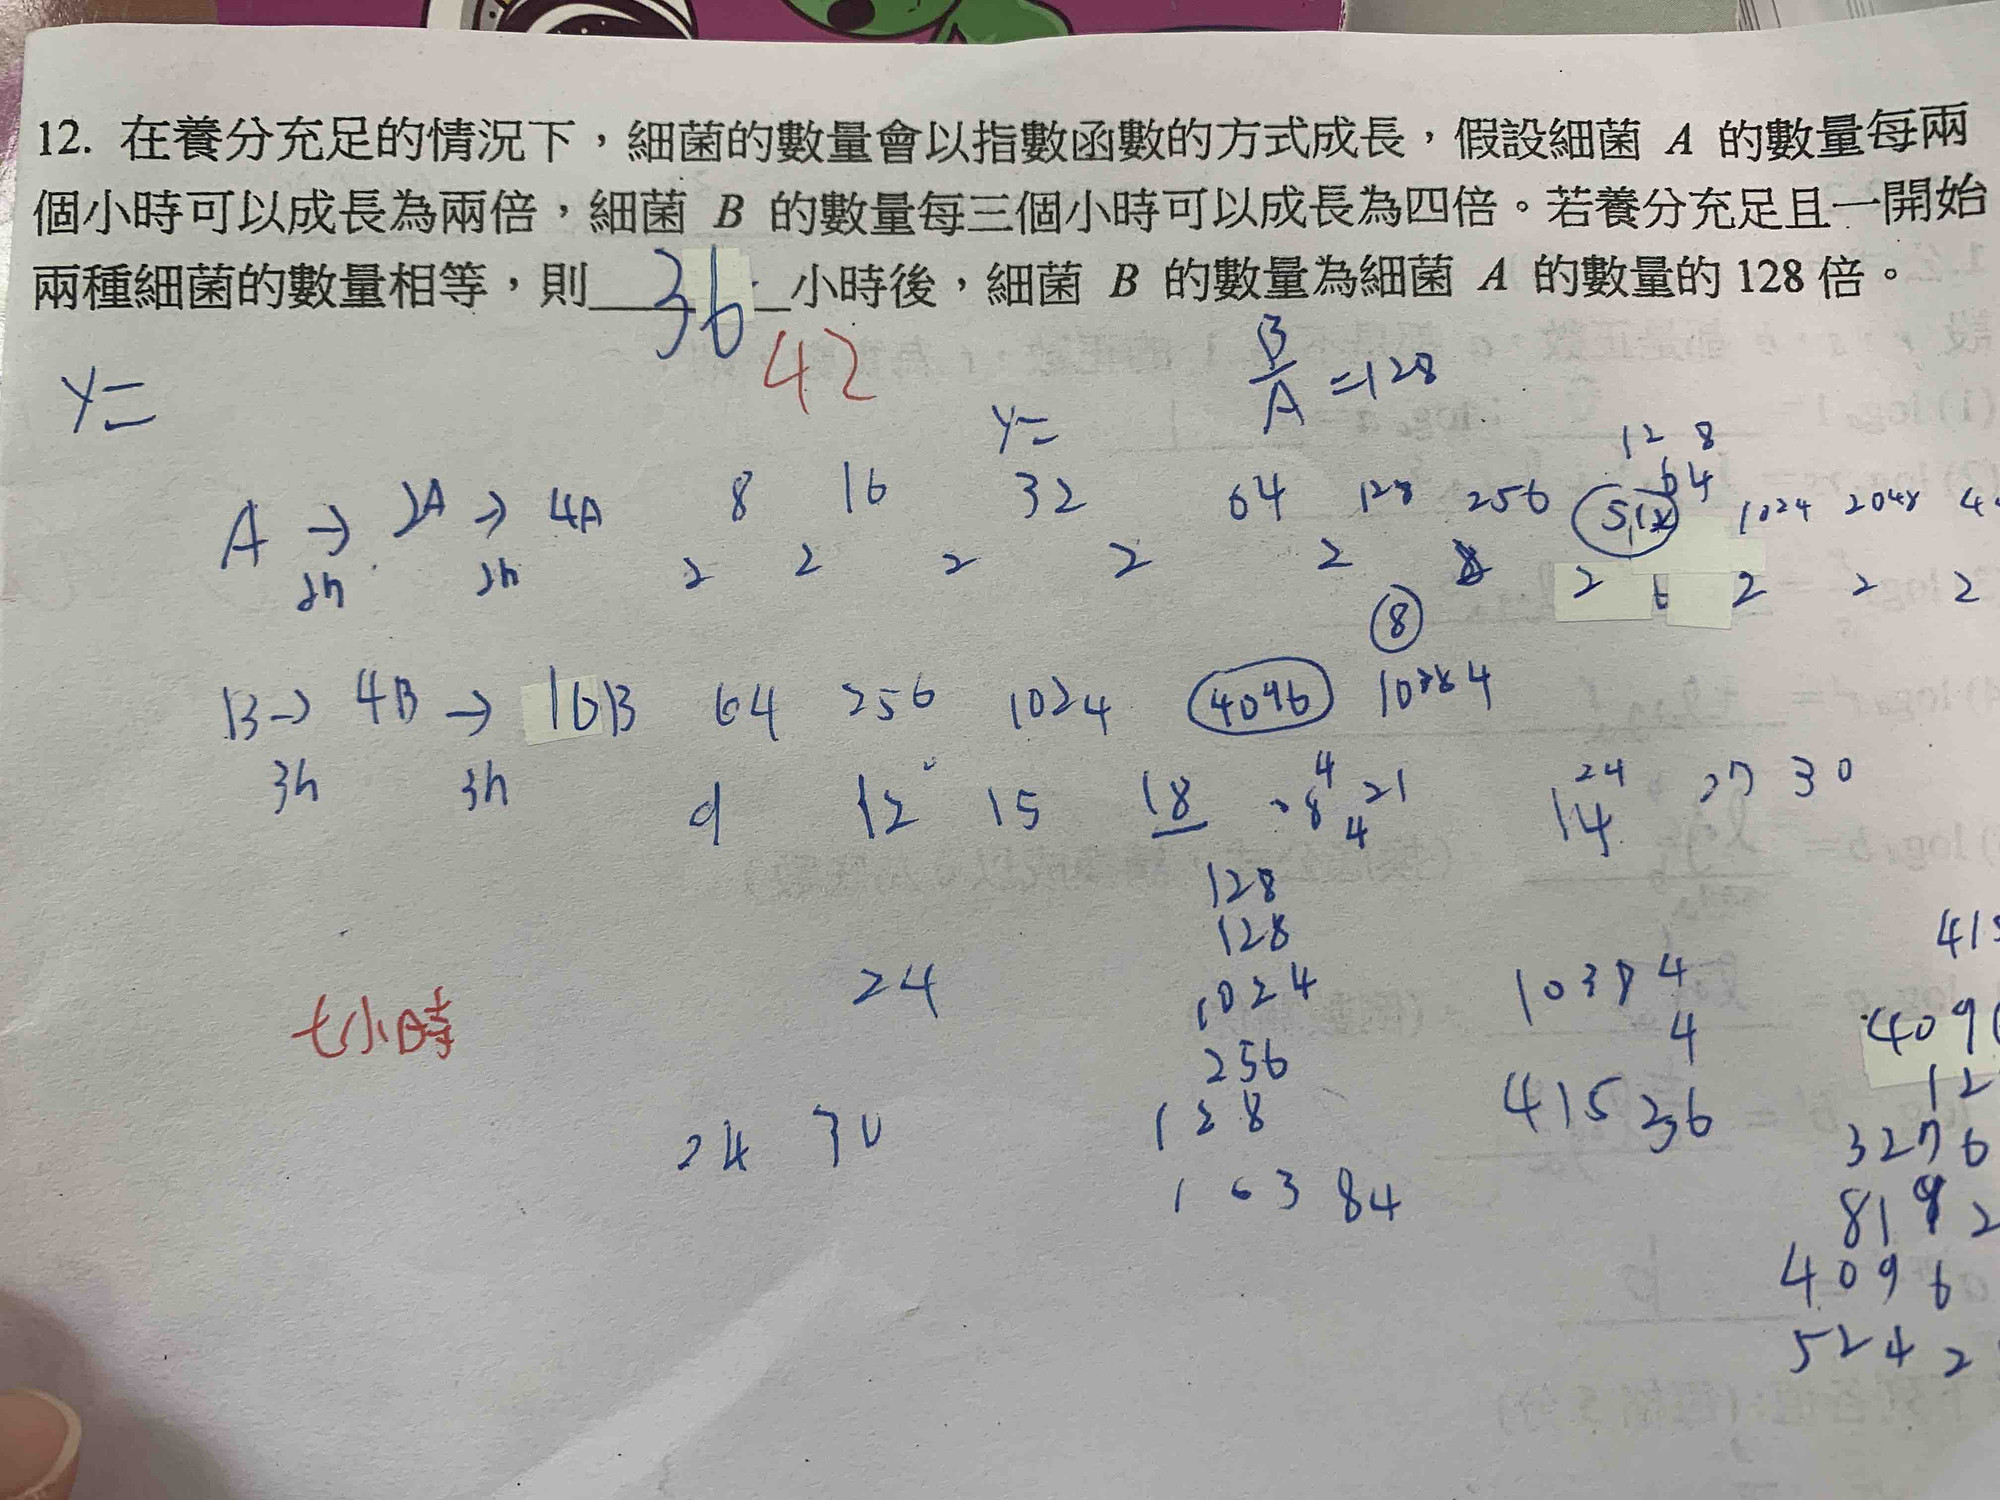 12. 在養分充足的情況下，細菌的數量會以指數函數的方式成長，假設細菌 A 的數量每兩
個小時可以成長為兩倍，細菌 B 的數量每三個小時可以成長為四倍。若養分充足且一開始
兩種細菌的數量相等，則 36 小時後，細菌 B 的數量為細菌 A 的數量的 128 倍。
42
B/A =128
y=
y=
128
64
A → 2A → 4A 8 16 32 64 128 256 512 1024 2048
2h 2h 2 2 2 2 2 2 2 2 2
8
B → 4B → 16B 64 256 1024 4096
3h 3h 9 12 15 18 21 24 27 30
4
4
14
128
128
1024
256
128
16384
24
七小時
24 30
10384
4
41536
415
409
12
3276
8192
4096
5242